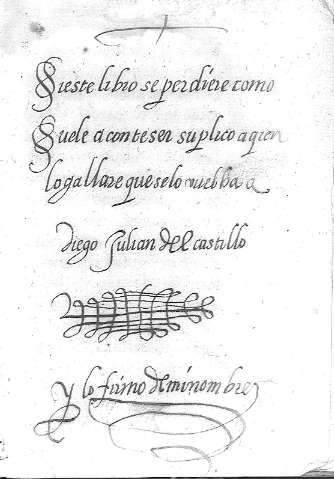 Si este libro se perdiere como
suele aconteser suplico a qien
lo gallare que se lo vuelba a
diego Julian del castillo
Y lo firmo de mi nombre